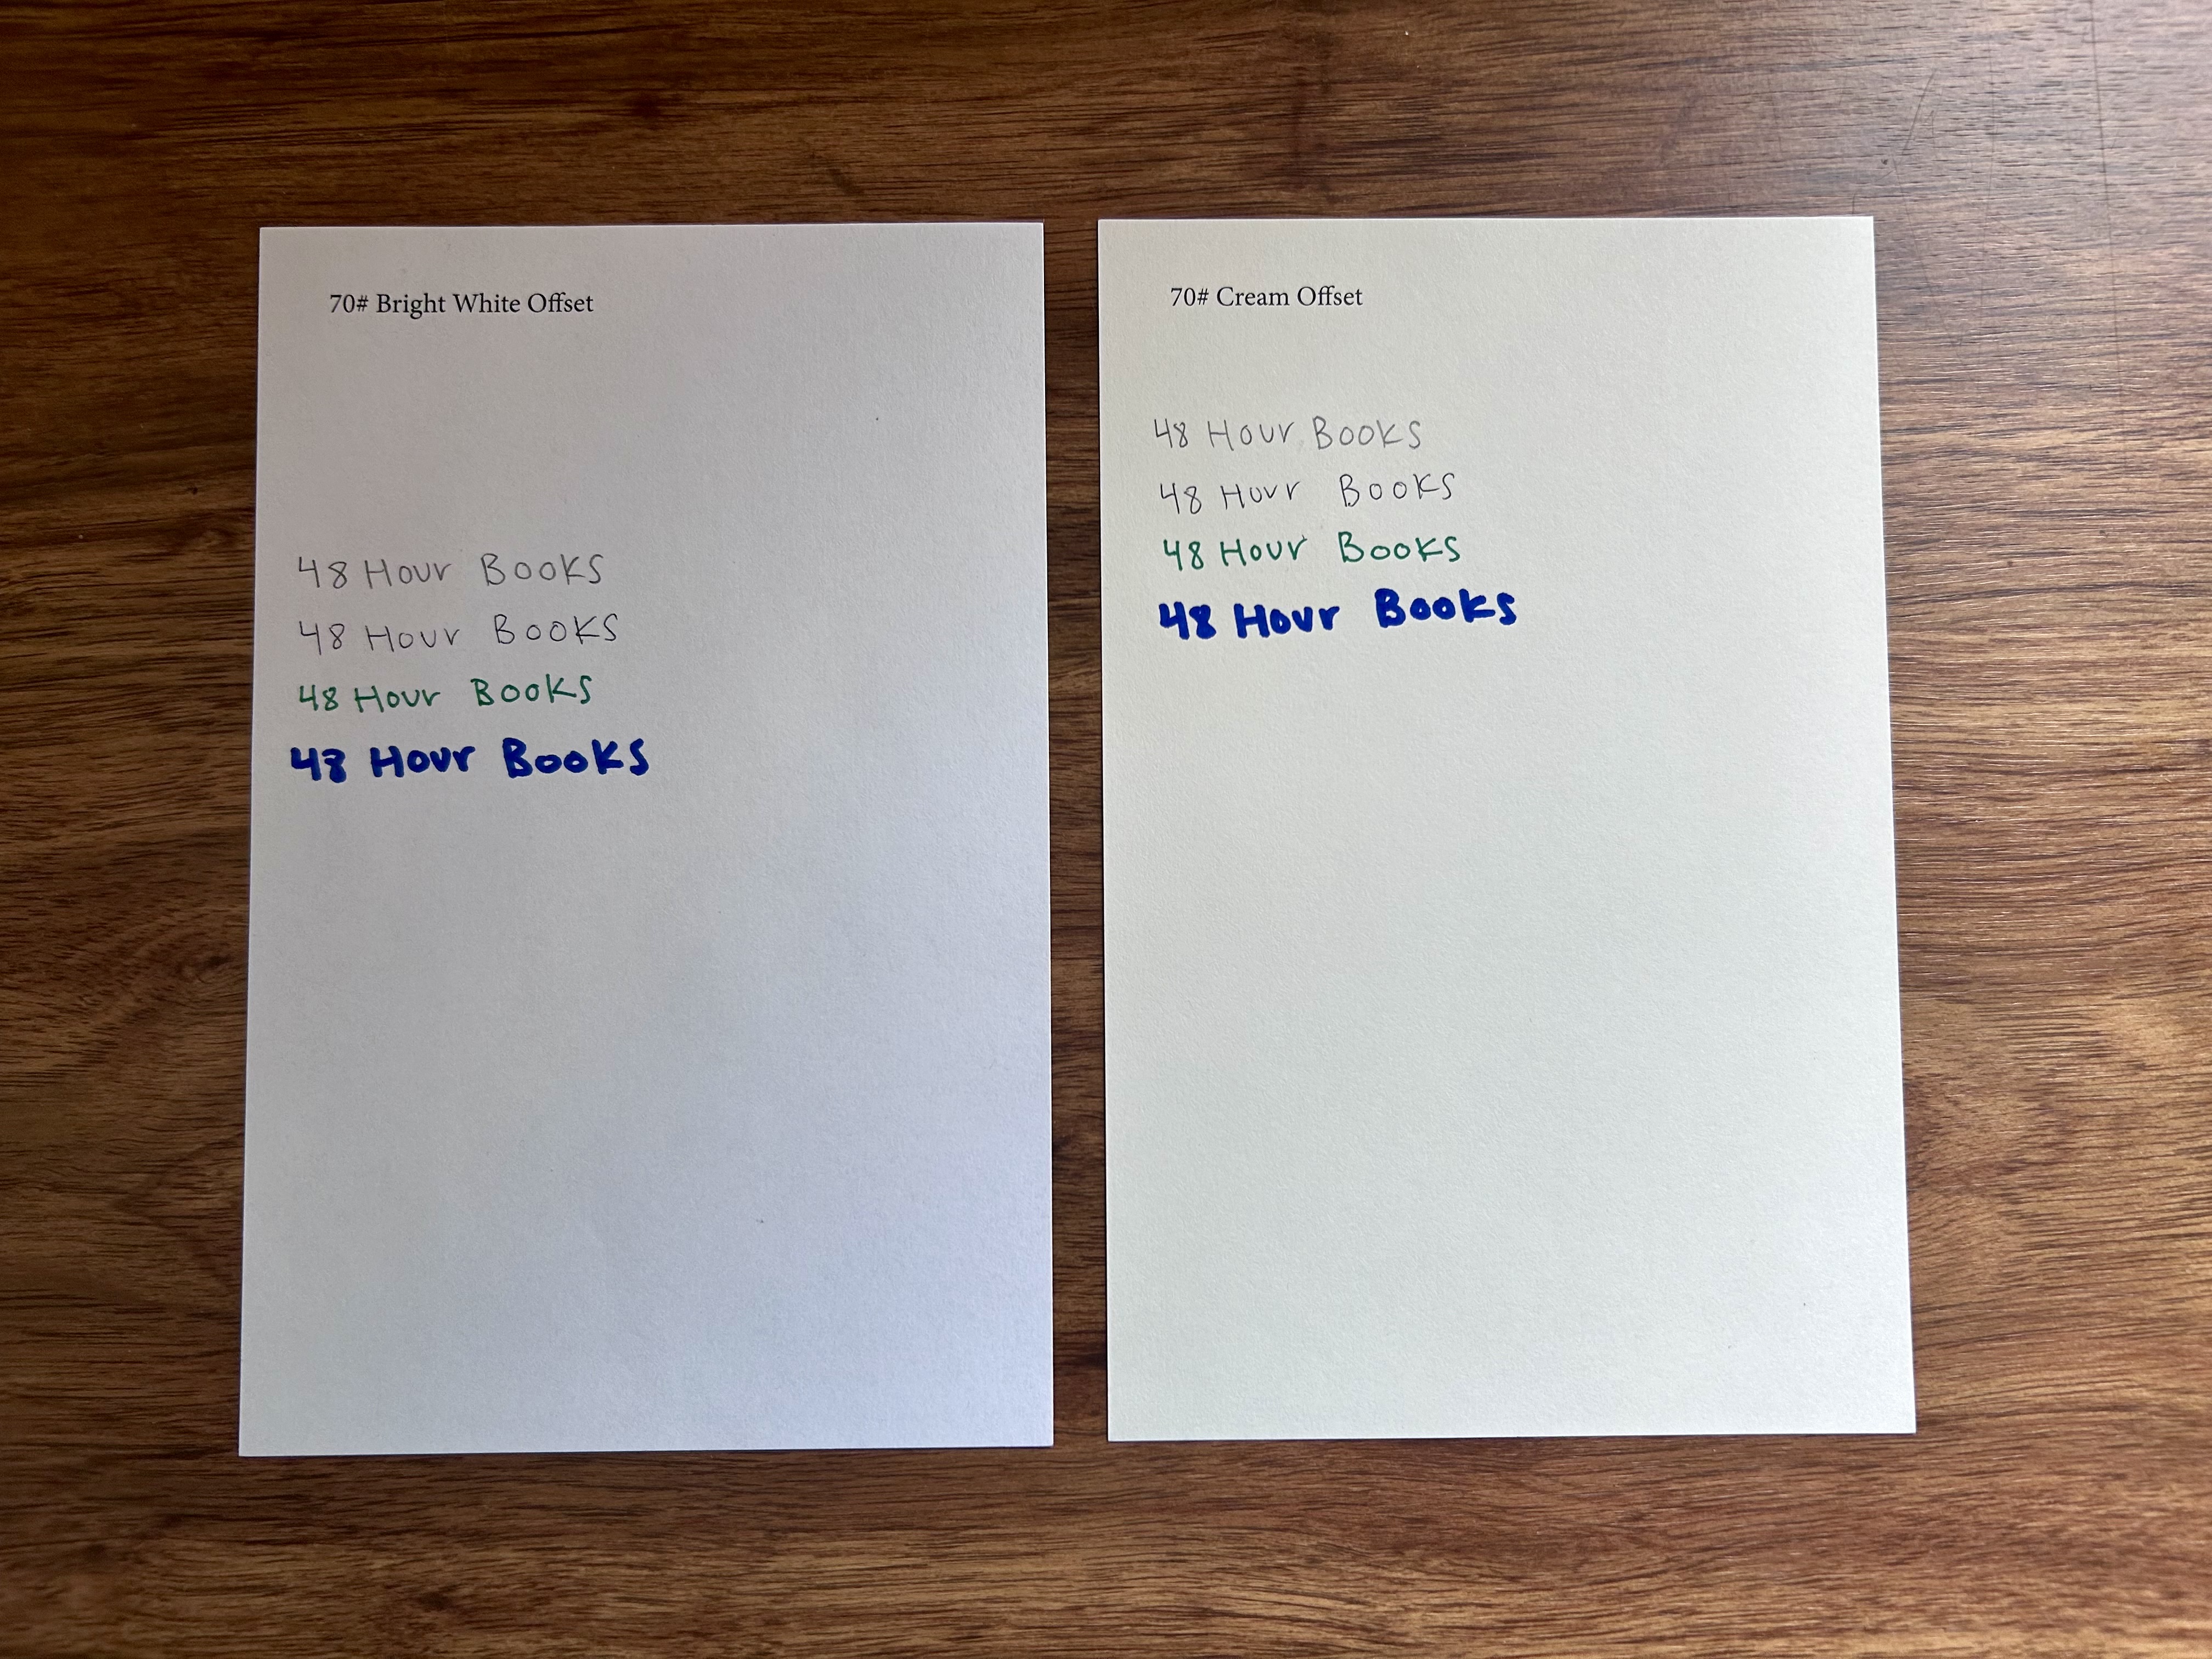 70# Bright White Offset
48 Hour Books
48 Hour Books
48 Hour Books
48 Hour Books
70# Cream Offset
48 Hour Books
48 Hour Books
48 Hour Books
48 Hour Books